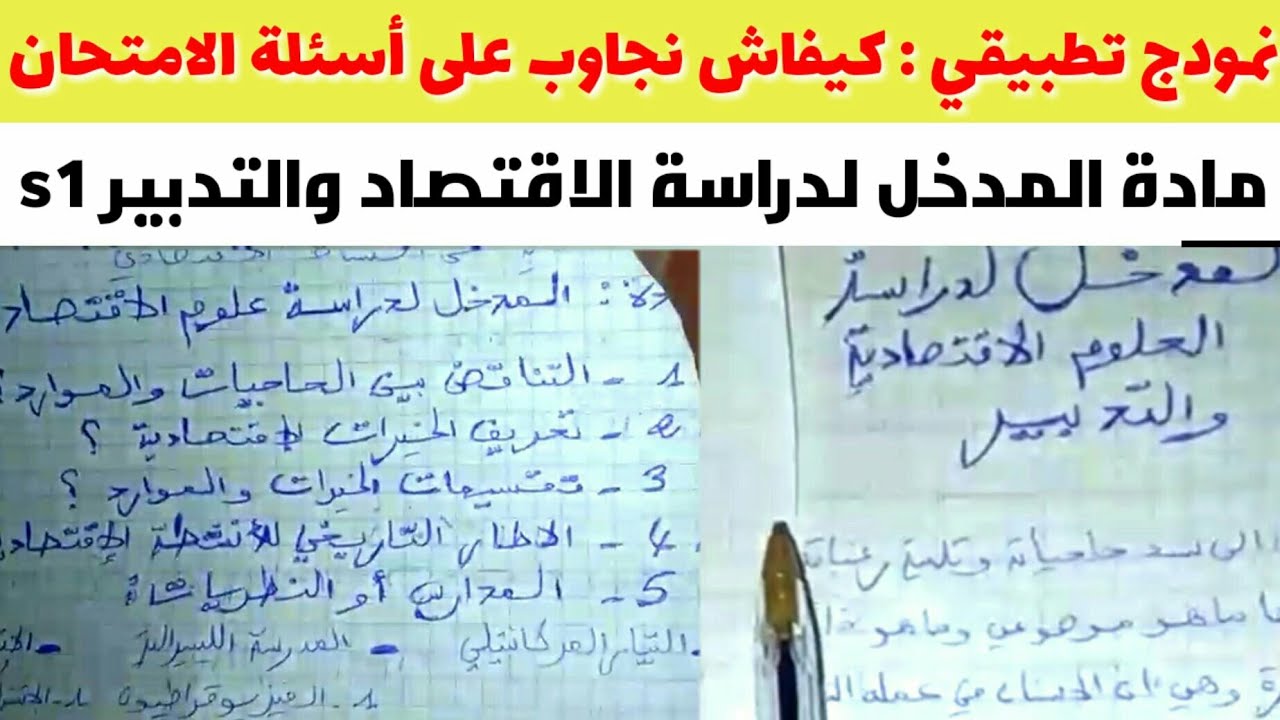 نمودج تطبيقي : كيفاش نجاوب على أسئلة الامتحان
مادة المدخل لدراسة الاقتصاد والتدبير s1
المدخل لدراسة علوم الاقتصاد
1 - التناقض بين الحاجيات والموارد؟
2 - تعريف الخيرات الإقتصادية ؟
3 - تقسيمات الخيرات والموارد ؟
4 - الاطار التاريخي للأنشطة الإقتصاد
5 - المدارس أو النظريات
التيار المركانتيلي - المدرسة الليبرالية -
1 - الفيزيوقراطيون
لمدخل لدراسة
العلوم الاقتصادية
والتدبير
الى سد حاجياته وتلبية رغباته
ما هو موضوعي وما هو
وهي أن الإنسان في عمله